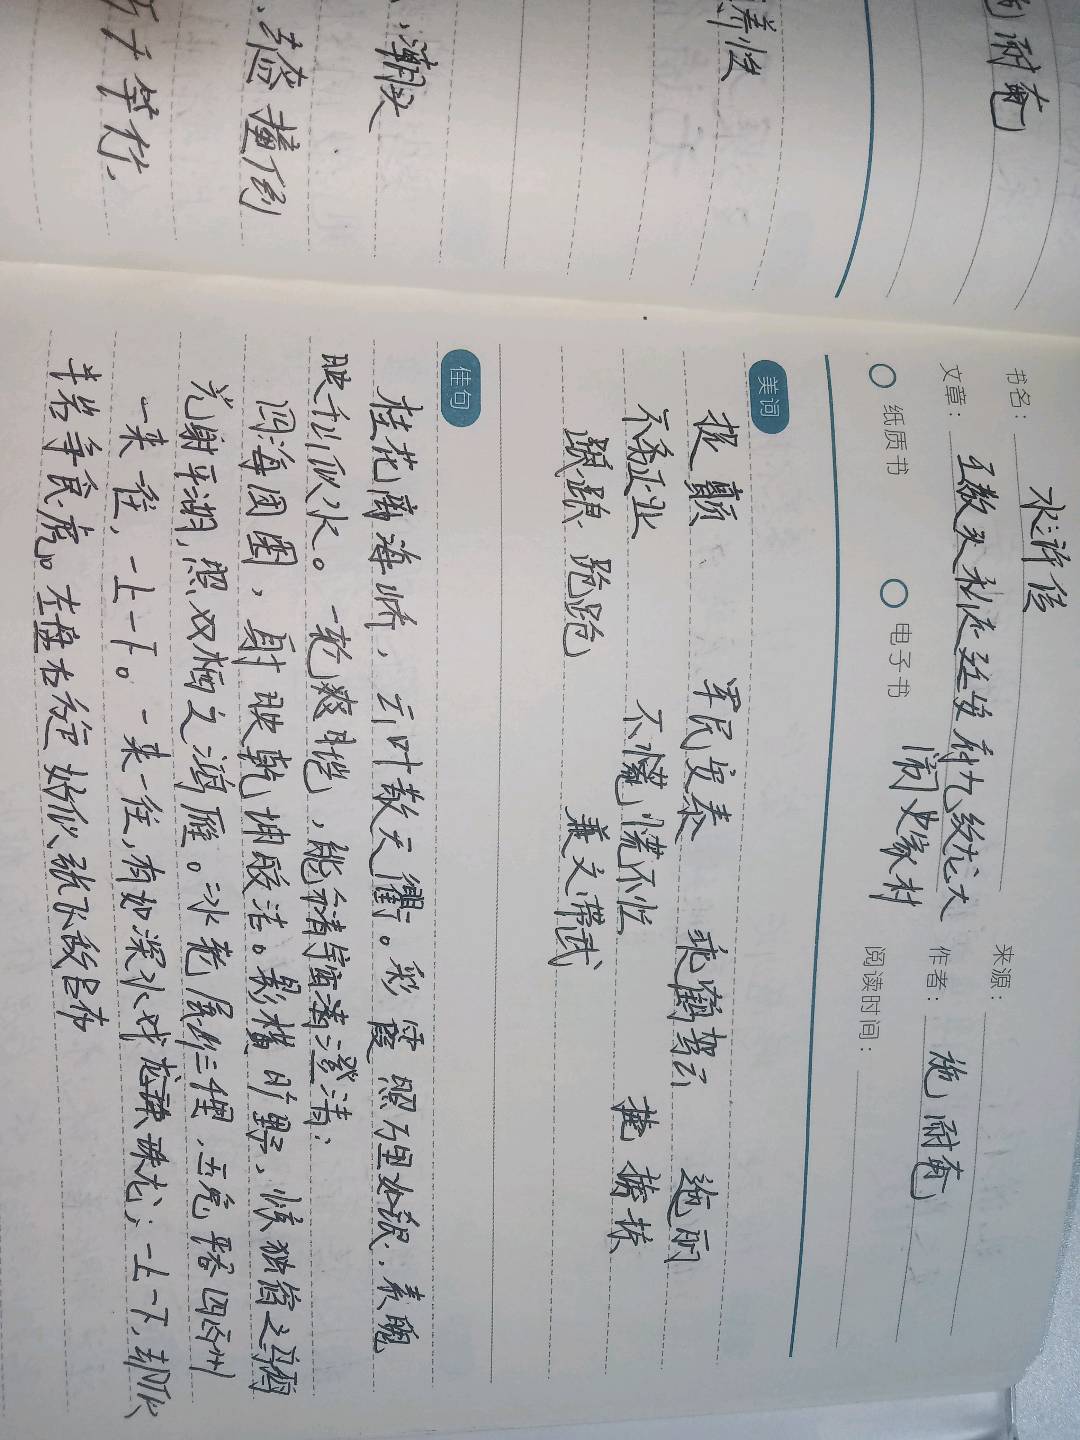 耐庵
养性
潮头
撞倒
书名：
水浒传
来源：
文章：
王教头私走延安府九纹龙大
闹史家村
作者：
施耐庵
纸质书
电子书
阅读时间：
美词
拔 颠
军民安泰
乘鹤驾云
迤逦
不务正业
不慌不忙
踉踉 跄跄
兼文带武
佳句
桂花离海峤，云叶散天衢。彩霞照 如银，素魄
映千山似水。一轮爽垲，能 宇宙澄清；
四海团圞，射映乾坤皎洁。影横旷野，惊独宿之
光射平湖，照双栖之鸿雁。冰轮展出三 ，玉兔平吞四百州
一来一往，一上一下。一来一往，有如深水戏 珠龙；一上一下，却似
半岩争食虎。左盘右旋 好似张飞敌吕布